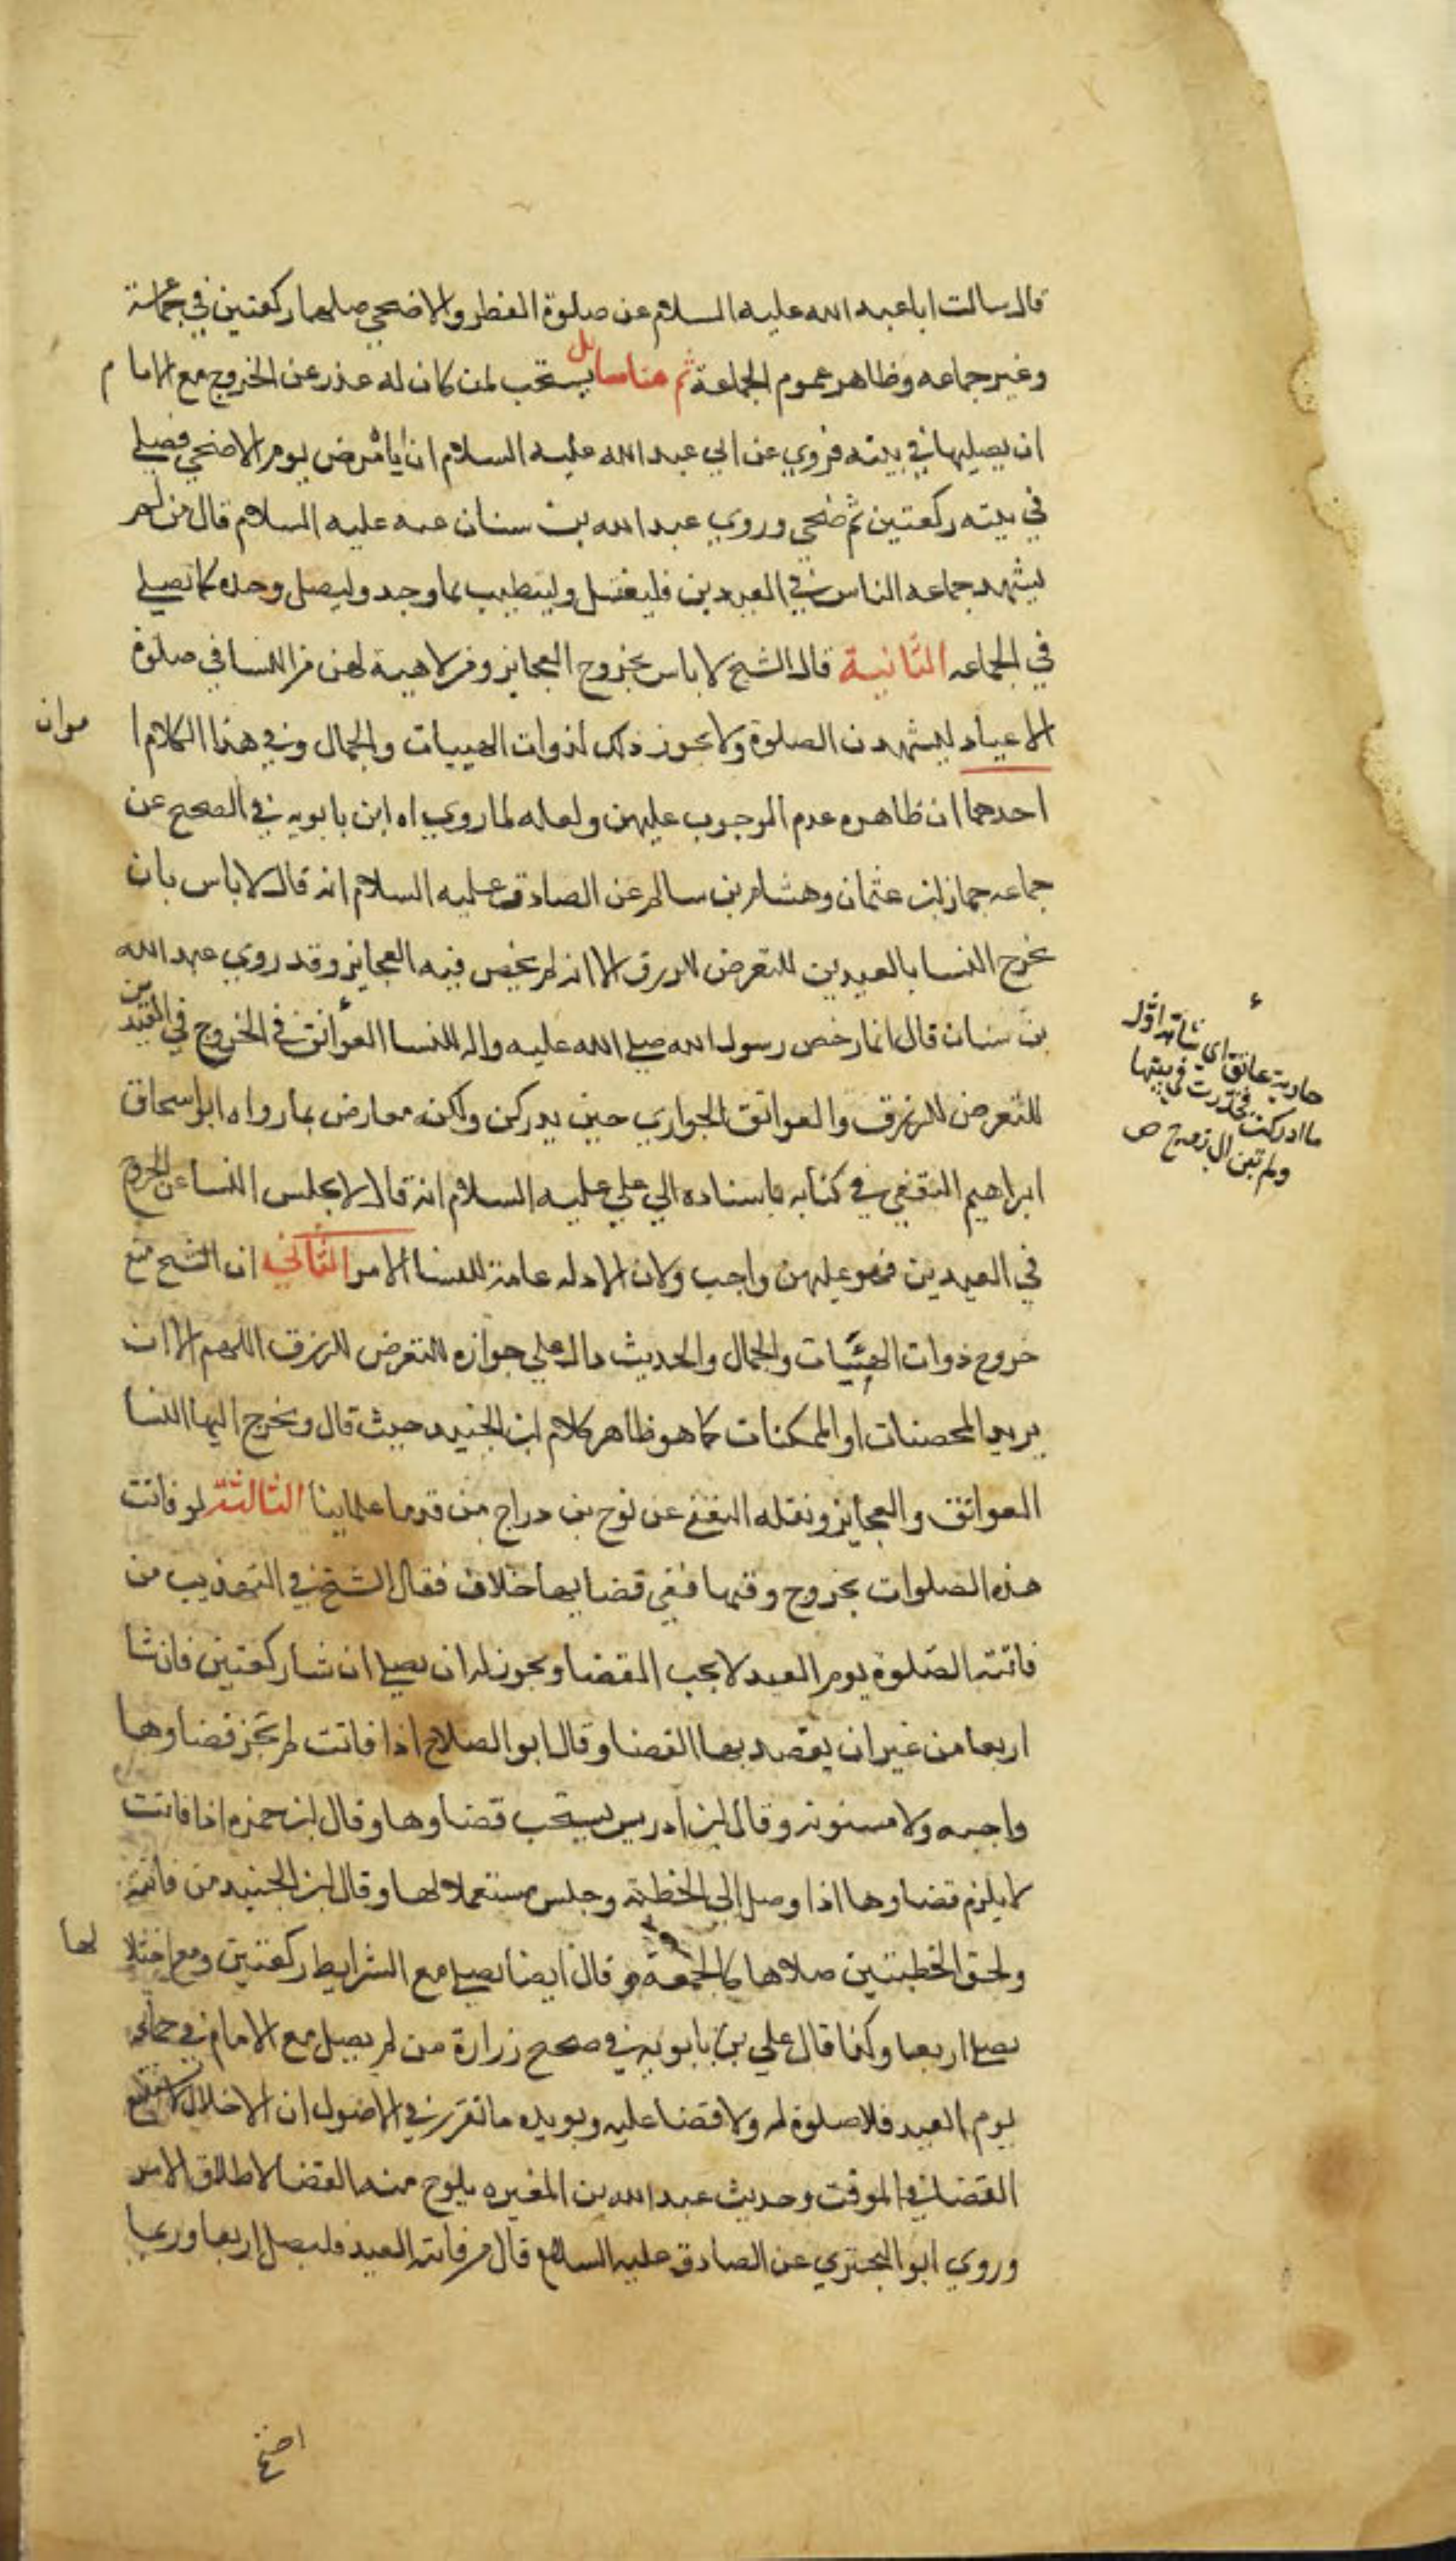 قال سالت ابا عبد الله عليه السلام عن صلوة الفطر والاضحي صلهما ركعتين في جماعة
وغير جماعه وظاهره عموم الجماعة ثم هنا مسايل يستحب لمن كان له عذر عن الخروج مع الامام
ان يصليها في بيته فروي عن ابي عبد الله عليه السلام ان ابا مرض يوم الاضحي فصلي
في بيته ركعتين ثم ضحي وروي عبد الله بن سنان عنه عليه السلام قال من لم
يشهد جماعه الناس في العيدين فليغتسل وليتطيب بما وجد وليصل وحده كما يصلي
في الجماعه الثانية قال الشيخ لا باس بخروج العجايز ومن لا هيية لهن من النسا في صلوة
الاعياد ليشهدن الصلوة ولا يجوز ذلك لذوات الهييات والجمال وفي هذا الكلام ا
مران
احدهما ان ظاهره عدم الوجوب عليهن ولعله لما رواه ابن بابويه في الصحيح عن
جماعه حماد بن عثمان وهشام بن سالم عن الصادق عليه السلام انه قال لا باس بان
تخرج النسا بالعيدين للتعرض للرزق الا انه لم يخص فيه العجايز وقد روي عبد الله
بن سنان قال انما رخص رسول الله صلي الله عليه واله للنسا العوانق في الخروج في العيدين
للتعرض للرزق والعواتق الجواري حين يدركن ولكنه معارض بما رواه ابو اسحاق
ابراهيم الثقفي في كتابه باسناده الي علي عليه السلام انه قال لا تحبس النسا عن الخروج
في العيدين فهو عليهن واجب ولان الادله عامة للنسا الامر الثاني ان الشيخ منع
خروج ذوات الهيئيات والجمال والحديث دال علي جوازه للتعرض للرزق اللهم الا ان
يريد المحصنات او الممكنات كما هو ظاهر كلام ابن الجنيد حيث قال ويخرج اليها النسا
العواتق والعجايز ونقله الثقفي عن نوح بن دراج من قدما علماينا الثالثة لو فاتت
هذه الصلوات بخروج وقتها ففي قضايها خلاف فقال الشيخ في التهذيب من
فاتته الصلوة يوم العيد لا يجب القضا ويجوز له ان يصلي ان شا ركعتين فان شا
اربعا من غير ان يقصد بها القضا وقال ابو الصلاح اذا فاتت لم يجز قضاوها
واجبه ولا مسنونه وقال ابن ادريس يستحب قضاوها وقال ابن حمزه اذا فاتت
لا يلزم قضاوها اذا وصل الي الخطبة وجلس مستمعا لها وقال ابن الجنيد من فاتته
ولحق الخطبتين صلاها كالجمعة وقال ايضا يصلي مع الشرايط ركعتين ومع اختلا
لها
يصلي اربعا وكذا قال علي بن بابويه في صحيح زرارة من لم يصل مع الامام في جماعه
يوم العيد فلا صلوة له ولا قضا عليه ويويده ما تقرر في الاصول ان الاخلال لا يستتبع
القضا في الموقت وحديث عبد الله بن المغيره يلوح منه القضا لاطلاق الامر
وروي ابو البختري عن الصادق عليه السلام قال من فاتته العيد فليصل اربعا وربما
جارية عاتق اي شابة اول
ما ادركت فخدرت في بيتها
ولم تبن الي زوج ص